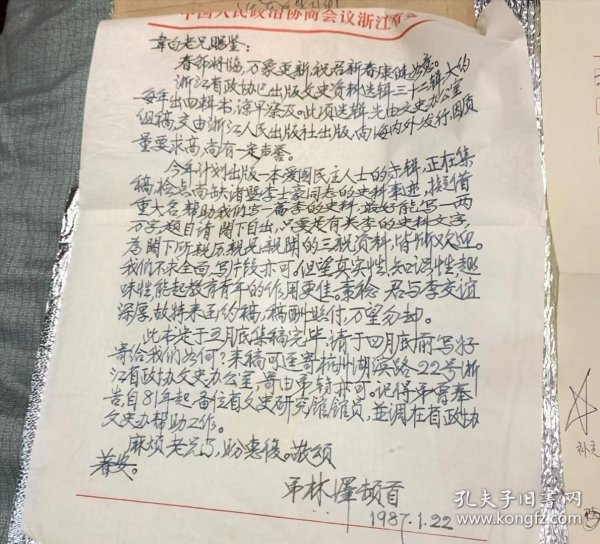 中国人民政治协商会议浙江
韦白老兄赐鉴:
春节将临,万象更新,祝君新春康健
浙江省政协已出版文史资料选辑三十二辑,大约
每年出四辑书,谅早察及。此项选辑,先由文史办公室
组稿,交由浙江人民出版社出版,向海内外发行,因质
量要求高,尚有一定声誉。
今年计划出版一本爱国民主人士的专辑,正在集
稿,检点尚缺诸暨李士豪同志的史料事迹,拟借
重大名帮助我们写一番李的史料,最好能写一两
万字题目请阁下自出,只要是有关李的史料文字,
为阁下所亲历亲见亲闻的三亲资料,皆所欢迎。
我们不求全面,写片段亦可,但望真实性,知识性,趣
味性,能起教育青年的作用更佳。素稔君与李交谊
深厚,故特来函约稿,稿酬照付,万望勿却。
此本定于三月底集稿完毕,请于四月底前写好
寄给我们如何?来稿可迳寄杭州湖滨路22号浙
江省政协文史办公室,寄由弟转亦可。记得弟曾奉
告自81年起备位省文史研究馆馆员,并调在省政协
文史办帮助工作。
麻烦老兄了,盼惠复。敬颂
春安。
弟林泽顿首
1987.1.22
补充
孔夫子旧书网
www.kongfz.com